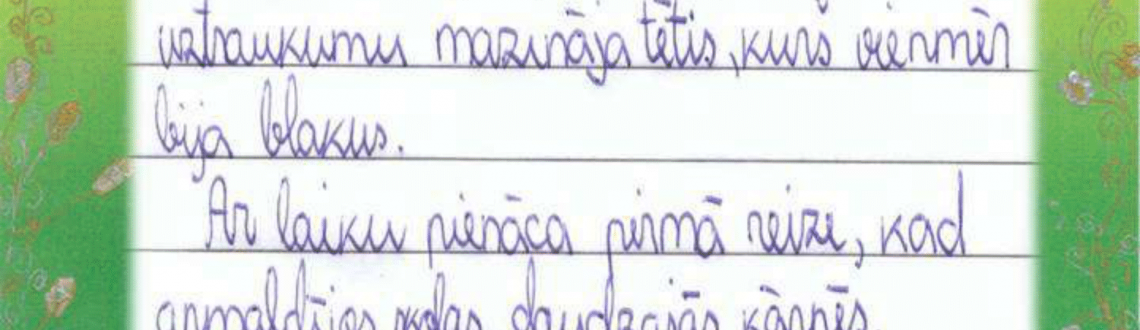 uztraukumu mazināja tētis, kurš vienmēr
bija blakus.
Ar laiku pienāca pirmā reize, kad
apmaldījos skolas daudzajās kāpnēs.